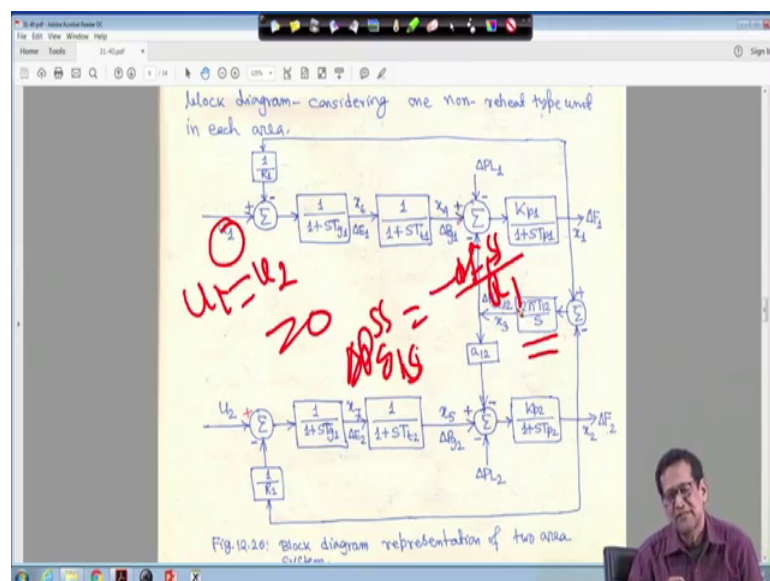 31-40.pdf - Adobe Acrobat Reader DC
File Edit View Window Help
Home Tools 31-40.pdf × Sign In
6 / 14 125%
block diagram- considering one non-reheat type unit
in each area.
1/R1
ΔPL1
u1 + Σ - 1/(1+STg1) x6 ΔE1 1/(1+STt1) x4 ΔPg1 + Σ - Kp1/(1+STp1) ΔF1 x1
u1 = u2
= 0
ΔPg1ss = -ΔFss/R1
x3 2πT12/S Σ + -
a12
u2 + Σ - 1/(1+STg2) x7 ΔE2 1/(1+STt2) x5 ΔPg2 + Σ - - Kp2/(1+STp2) ΔF2 x2
1/R2
ΔPL2
Fig.12.20: Block diagram representation of two area
system.